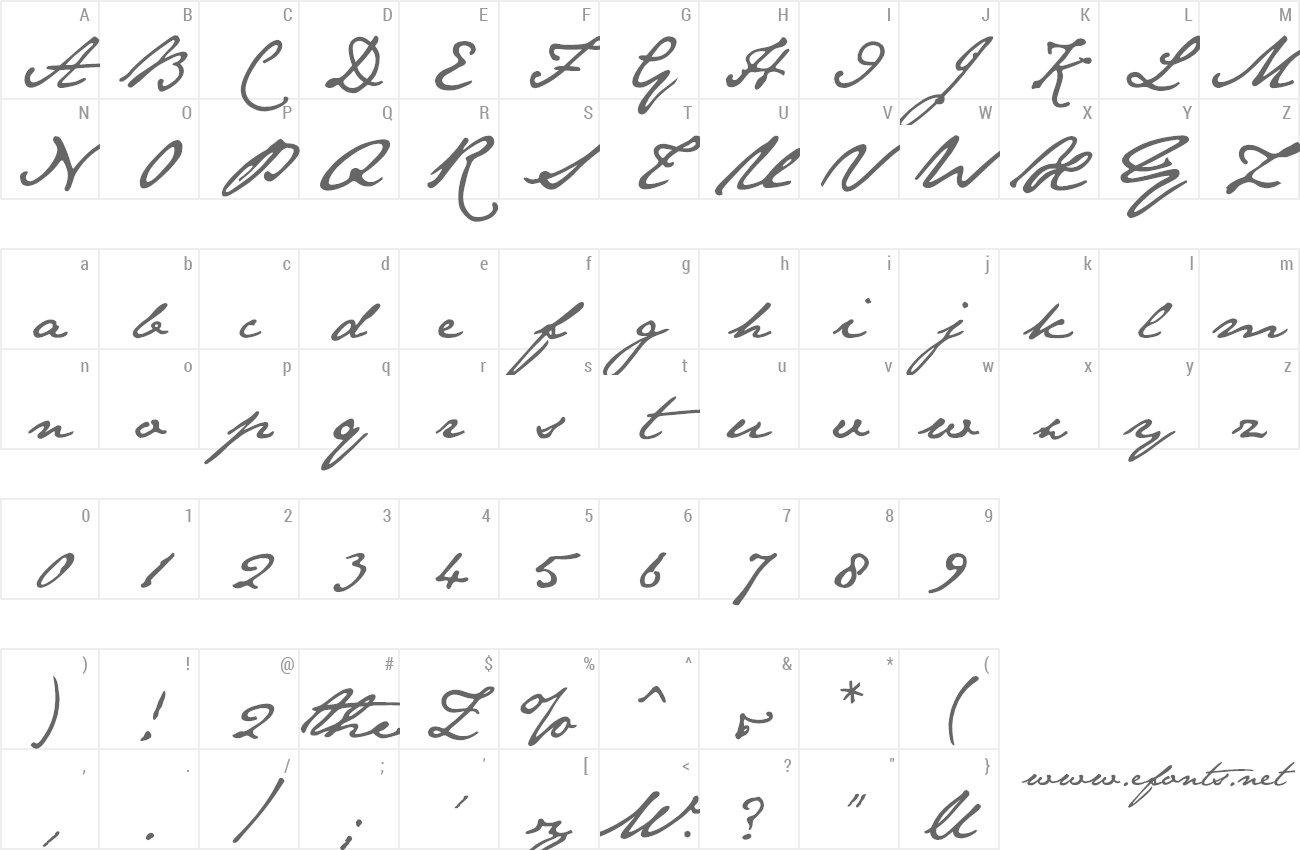 A B C D E F G H I J K L M
A B C D E F G H I J K L M
N O P Q R S T U V W X Y Z
N O P Q R S T U V W X Y Z
a b c d e f g h i j k l m
a b c d e f g h i j k l m
n o p q r s t u v w x y z
n o p q r s t u v w x y z
0 1 2 3 4 5 6 7 8 9
0 1 2 3 4 5 6 7 8 9
) ! @ # $ % ^ & * (
) ! 2 the £ % ^ * (
, . / ; ' [ < ? " }
, . / ; ' W. ? "
www.efonts.net